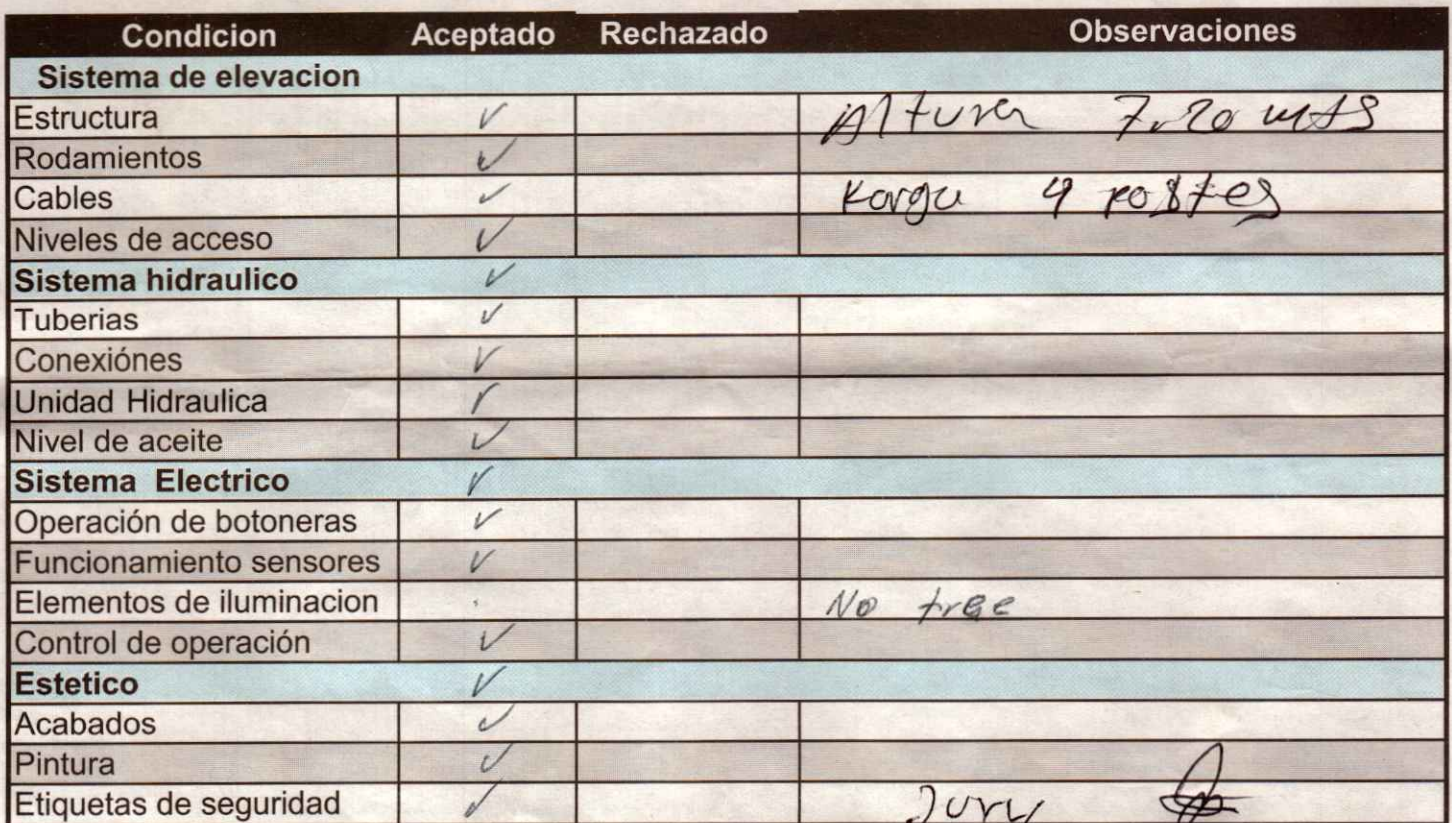 Condicion Aceptado Rechazado Observaciones
Sistema de elevacion
Estructura ✓ Altura 7.20 mts
Rodamientos ✓
Cables ✓ Karga 4 postes
Niveles de acceso ✓
Sistema hidraulico ✓
Tuberias ✓
Conexiónes ✓
Unidad Hidraulica ✓
Nivel de aceite ✓
Sistema Electrico ✓
Operación de botoneras ✓
Funcionamiento sensores ✓
Elementos de iluminacion No trae
Control de operación ✓
Estetico ✓
Acabados ✓
Pintura ✓
Etiquetas de seguridad ✓